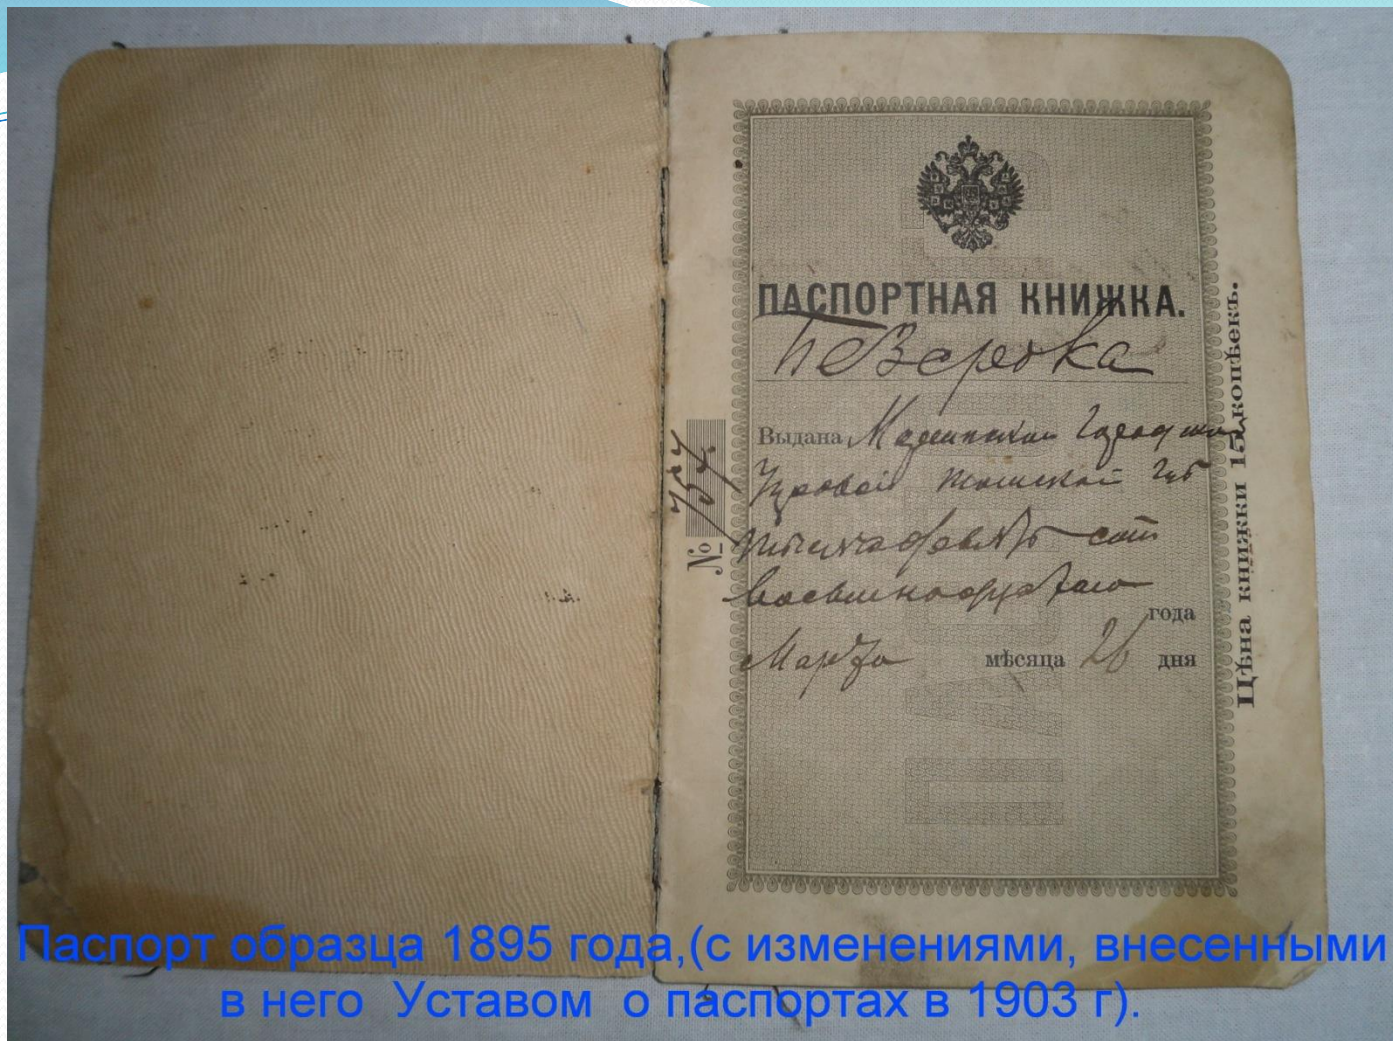 ПАСПОРТНАЯ КНИЖКА.
БеЗсрока
Выдана Мариинской Городской
Управой Томской Губ
тысяча девятьсот
восемнадцатаго
года
Марта мѣсяца 26 дня
№
Цѣна книжки 15 копѣекъ.
Паспорт образца 1895 года,(с изменениями, внесенными
в него Уставом о паспортах в 1903 г).